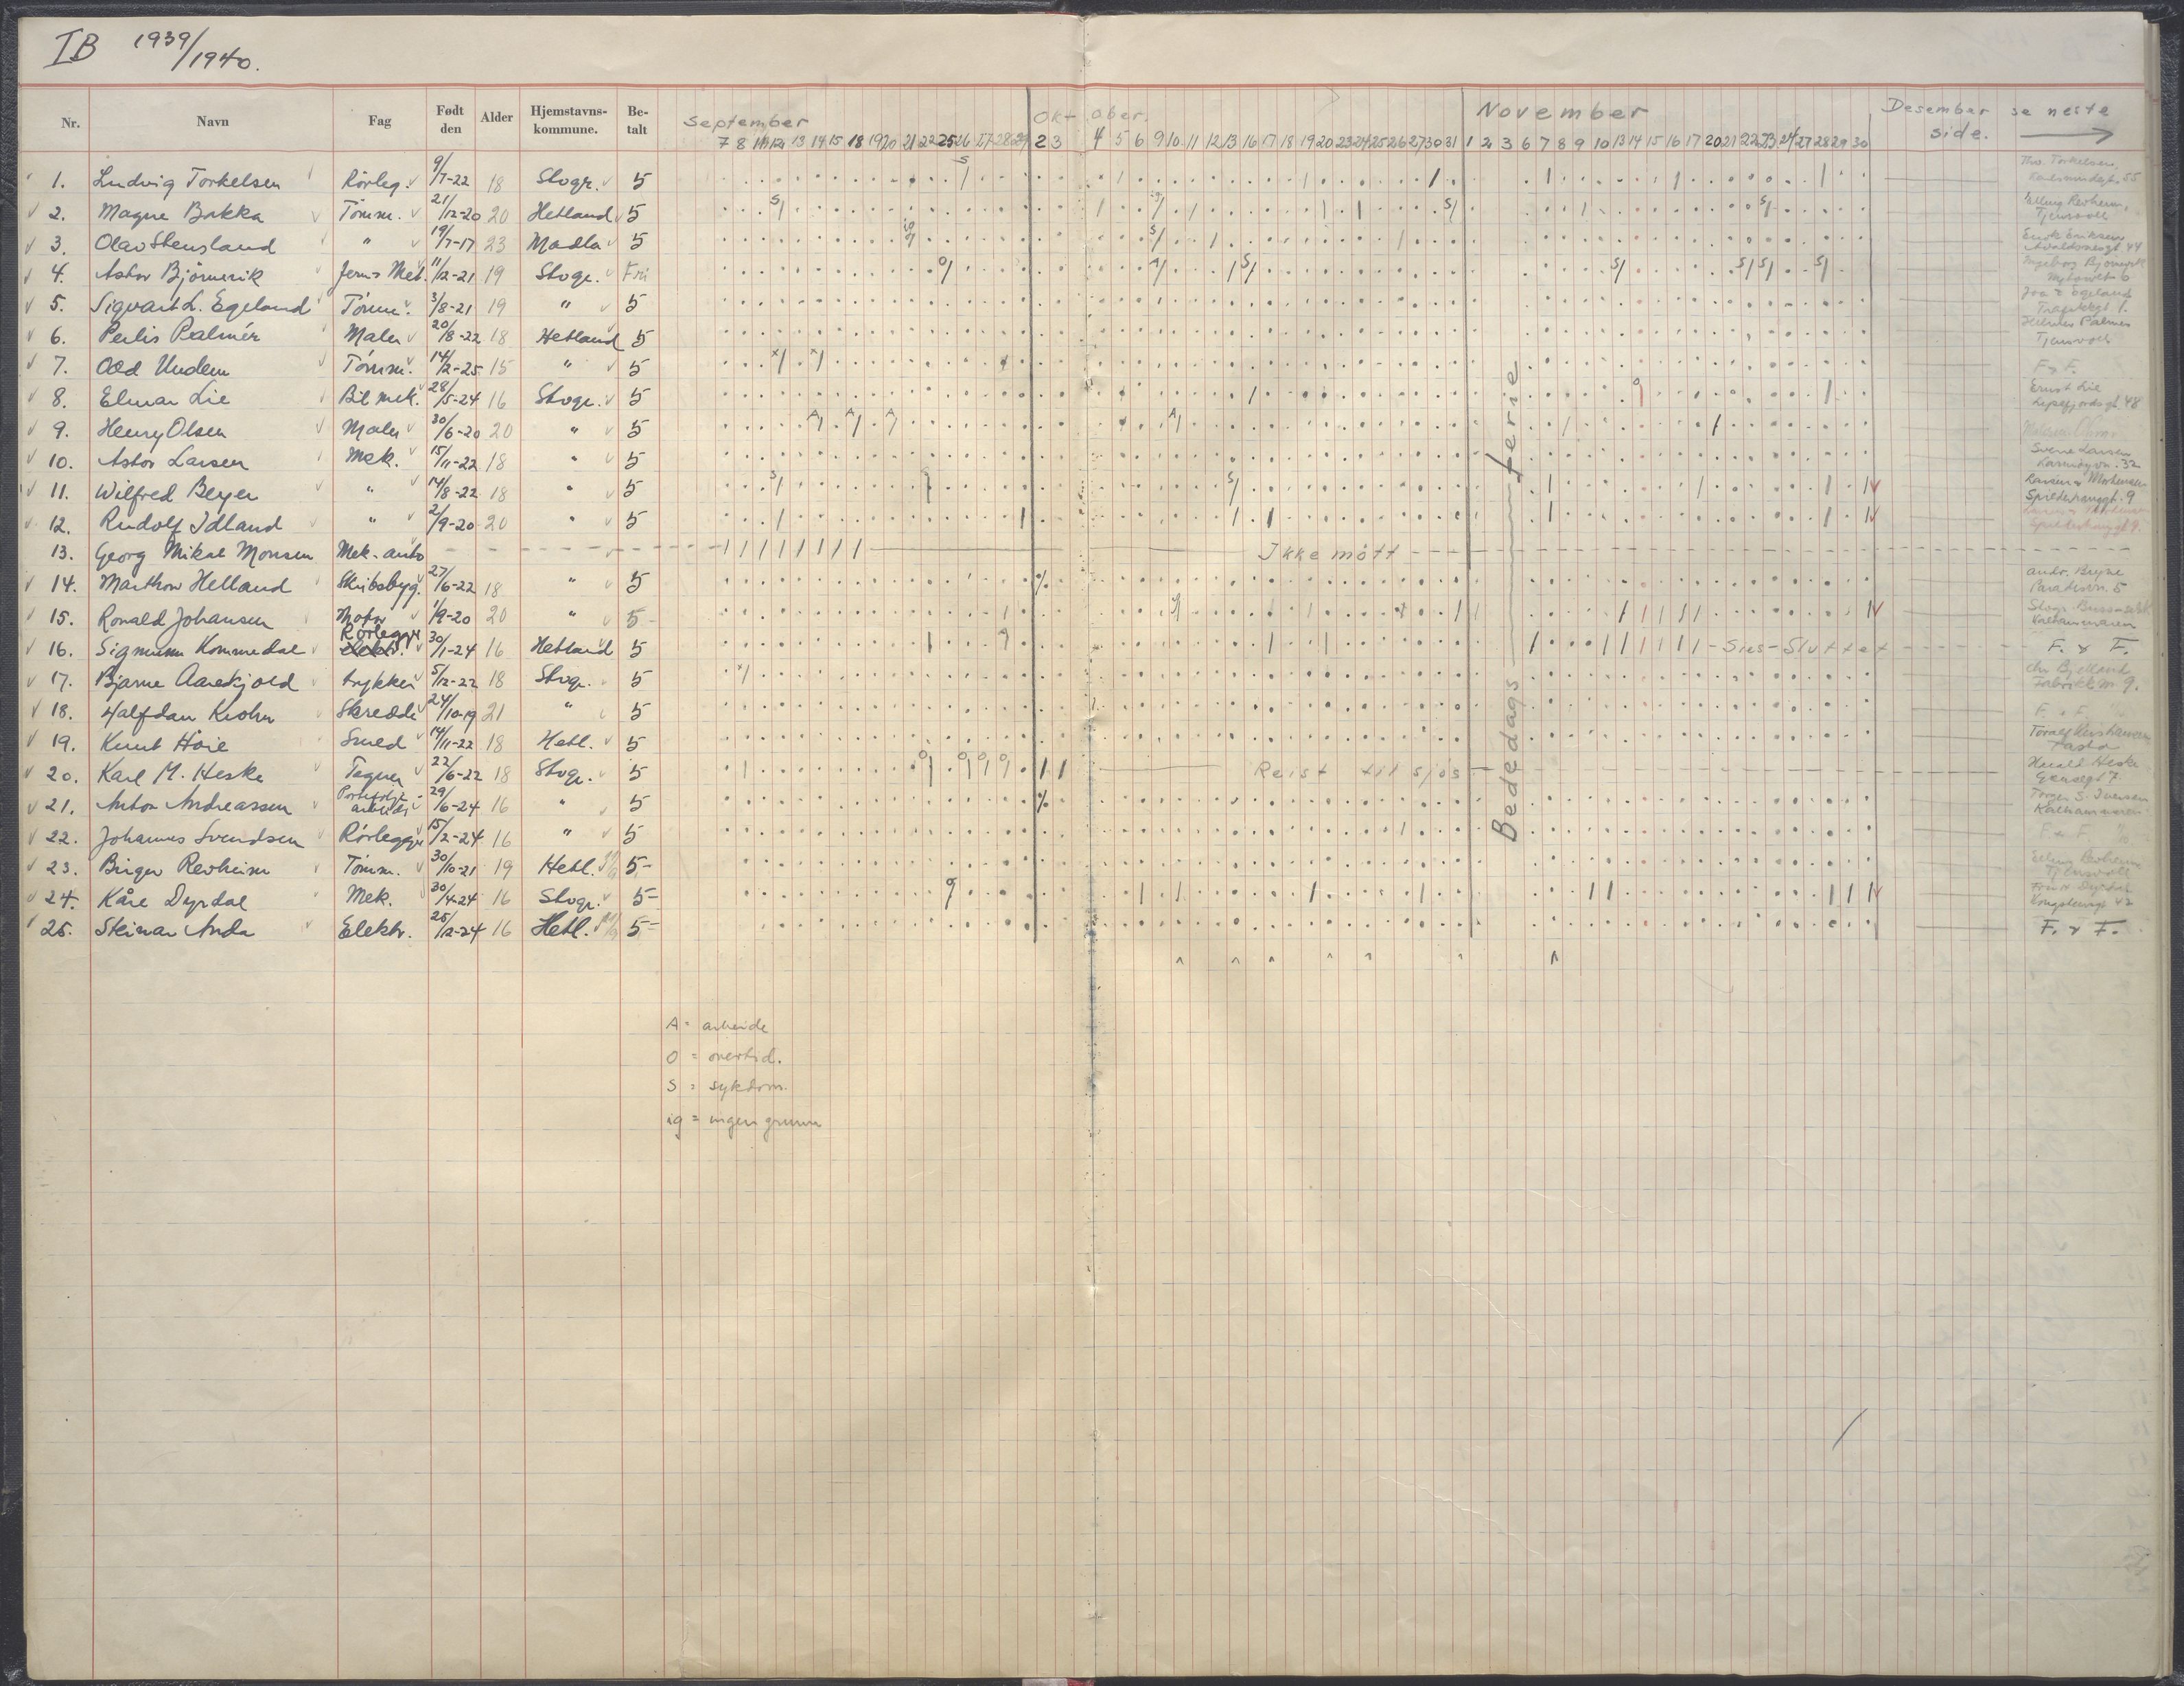 IB 1939/1940.
Nr. Navn Fag Født den Alder Hjemstavns-kommune. Be-talt September Oktober. November Desember se neste side.
7 8 11 12 13 14 15 18 19 20 21 22 25 26 27 28 29 2 3 4 5 6 9 10 11 12 13 16 17 18 19 20 23 24 25 26 27 30 31 1 2 3 6 7 8 9 10 13 14 15 16 17 20 21 22 23 24 27 28 29 30
1. Ludvig Torkelsen Rörleg. 9/7-22 18 Stvgr. 5 Tho. Torkelsen
2. Magne Bakka Tömm. 21/12-20 20 Hetland 5 Elling Revheim, Tjensvoll
3. Olav Stensland " 19/7-17 23 Madla 5 Eirik Eriksen Avaldsnesgt 44
4. Astor Björnevik Jern & Met. 11/12-21 19 Stvgr. Fri Ingeborg Björnevik
5. Sigvart L. Egeland Tömm. 3/8-21 19 " 5 Egeland
6. Perlis Palmér Maler 20/8-22 18 Hetland 5 Palmér Tjensvoll
7. Odd Undem Tömm. 14/2-25 15 " 5 F & F.
8. Elmar Lie Bil mek. 28/5-24 16 Stvgr. 5 Ernst Lie Lysefjordsgt. 48
9. Henry Olsen Maler 30/6-20 20 " 5
10. Astor Larsen Mek. 15/11-22 18 " 5 Sverre Larsen Karmöyvn. 32
11. Wilfred Beyer " 14/8-22 18 " 5 Larsen & Mortensen Spilderhauggt. 9
12. Rudolf Idland " 2/9-20 20 " 5
13. Georg Mikal Monsen Mek. auto Ikke mött
14. Marthon Helland Skibsbyg. 27/6-22 18 " 5 Andr. Bryne Paradisvn. 5
15. Ronald Johansen Motor 1/9-20 20 " 5- Stvgr. Buss-selsk
16. Sigmunn Kommedal Rörlegger Elektr. 30/1-24 16 Hetland 5 Sies-Sluttet F. & F.
17. Bjarne Aarekjold trykker 5/12-22 18 Stvgr. 5 Chr. Bjelland Fabrikk nr 9.
18. Halfdan Krohn Skredder 24/10-19 21 " 5 F. & F.
19. Knut Höie Smed 14/11-22 18 Hetl. 5
20. Karl M. Heske Tegner 22/6-22 18 Stvgr. 5 Reist til sjös Harald Heske
21. Anton Andreassen Portefölje-arbeider 29/6-24 16 " 5
22. Johannes Svendsen Rörlegger 15/2-24 16 " 5 F. & F.
23. Birger Revheim Tömm. 30/10-21 19 Hetl. 5- Elling Revheim Tjensvoll
24. Kåre Dyrdal Mek. 30/4-24 16 Stvgr. 5-
25. Steinar Anda Elektr. 25/12-24 16 Hetl. 5- F. & F.
Bededagsferie
A = arbeide
O = overtid.
S = sykdom.
ig = ingen grunn